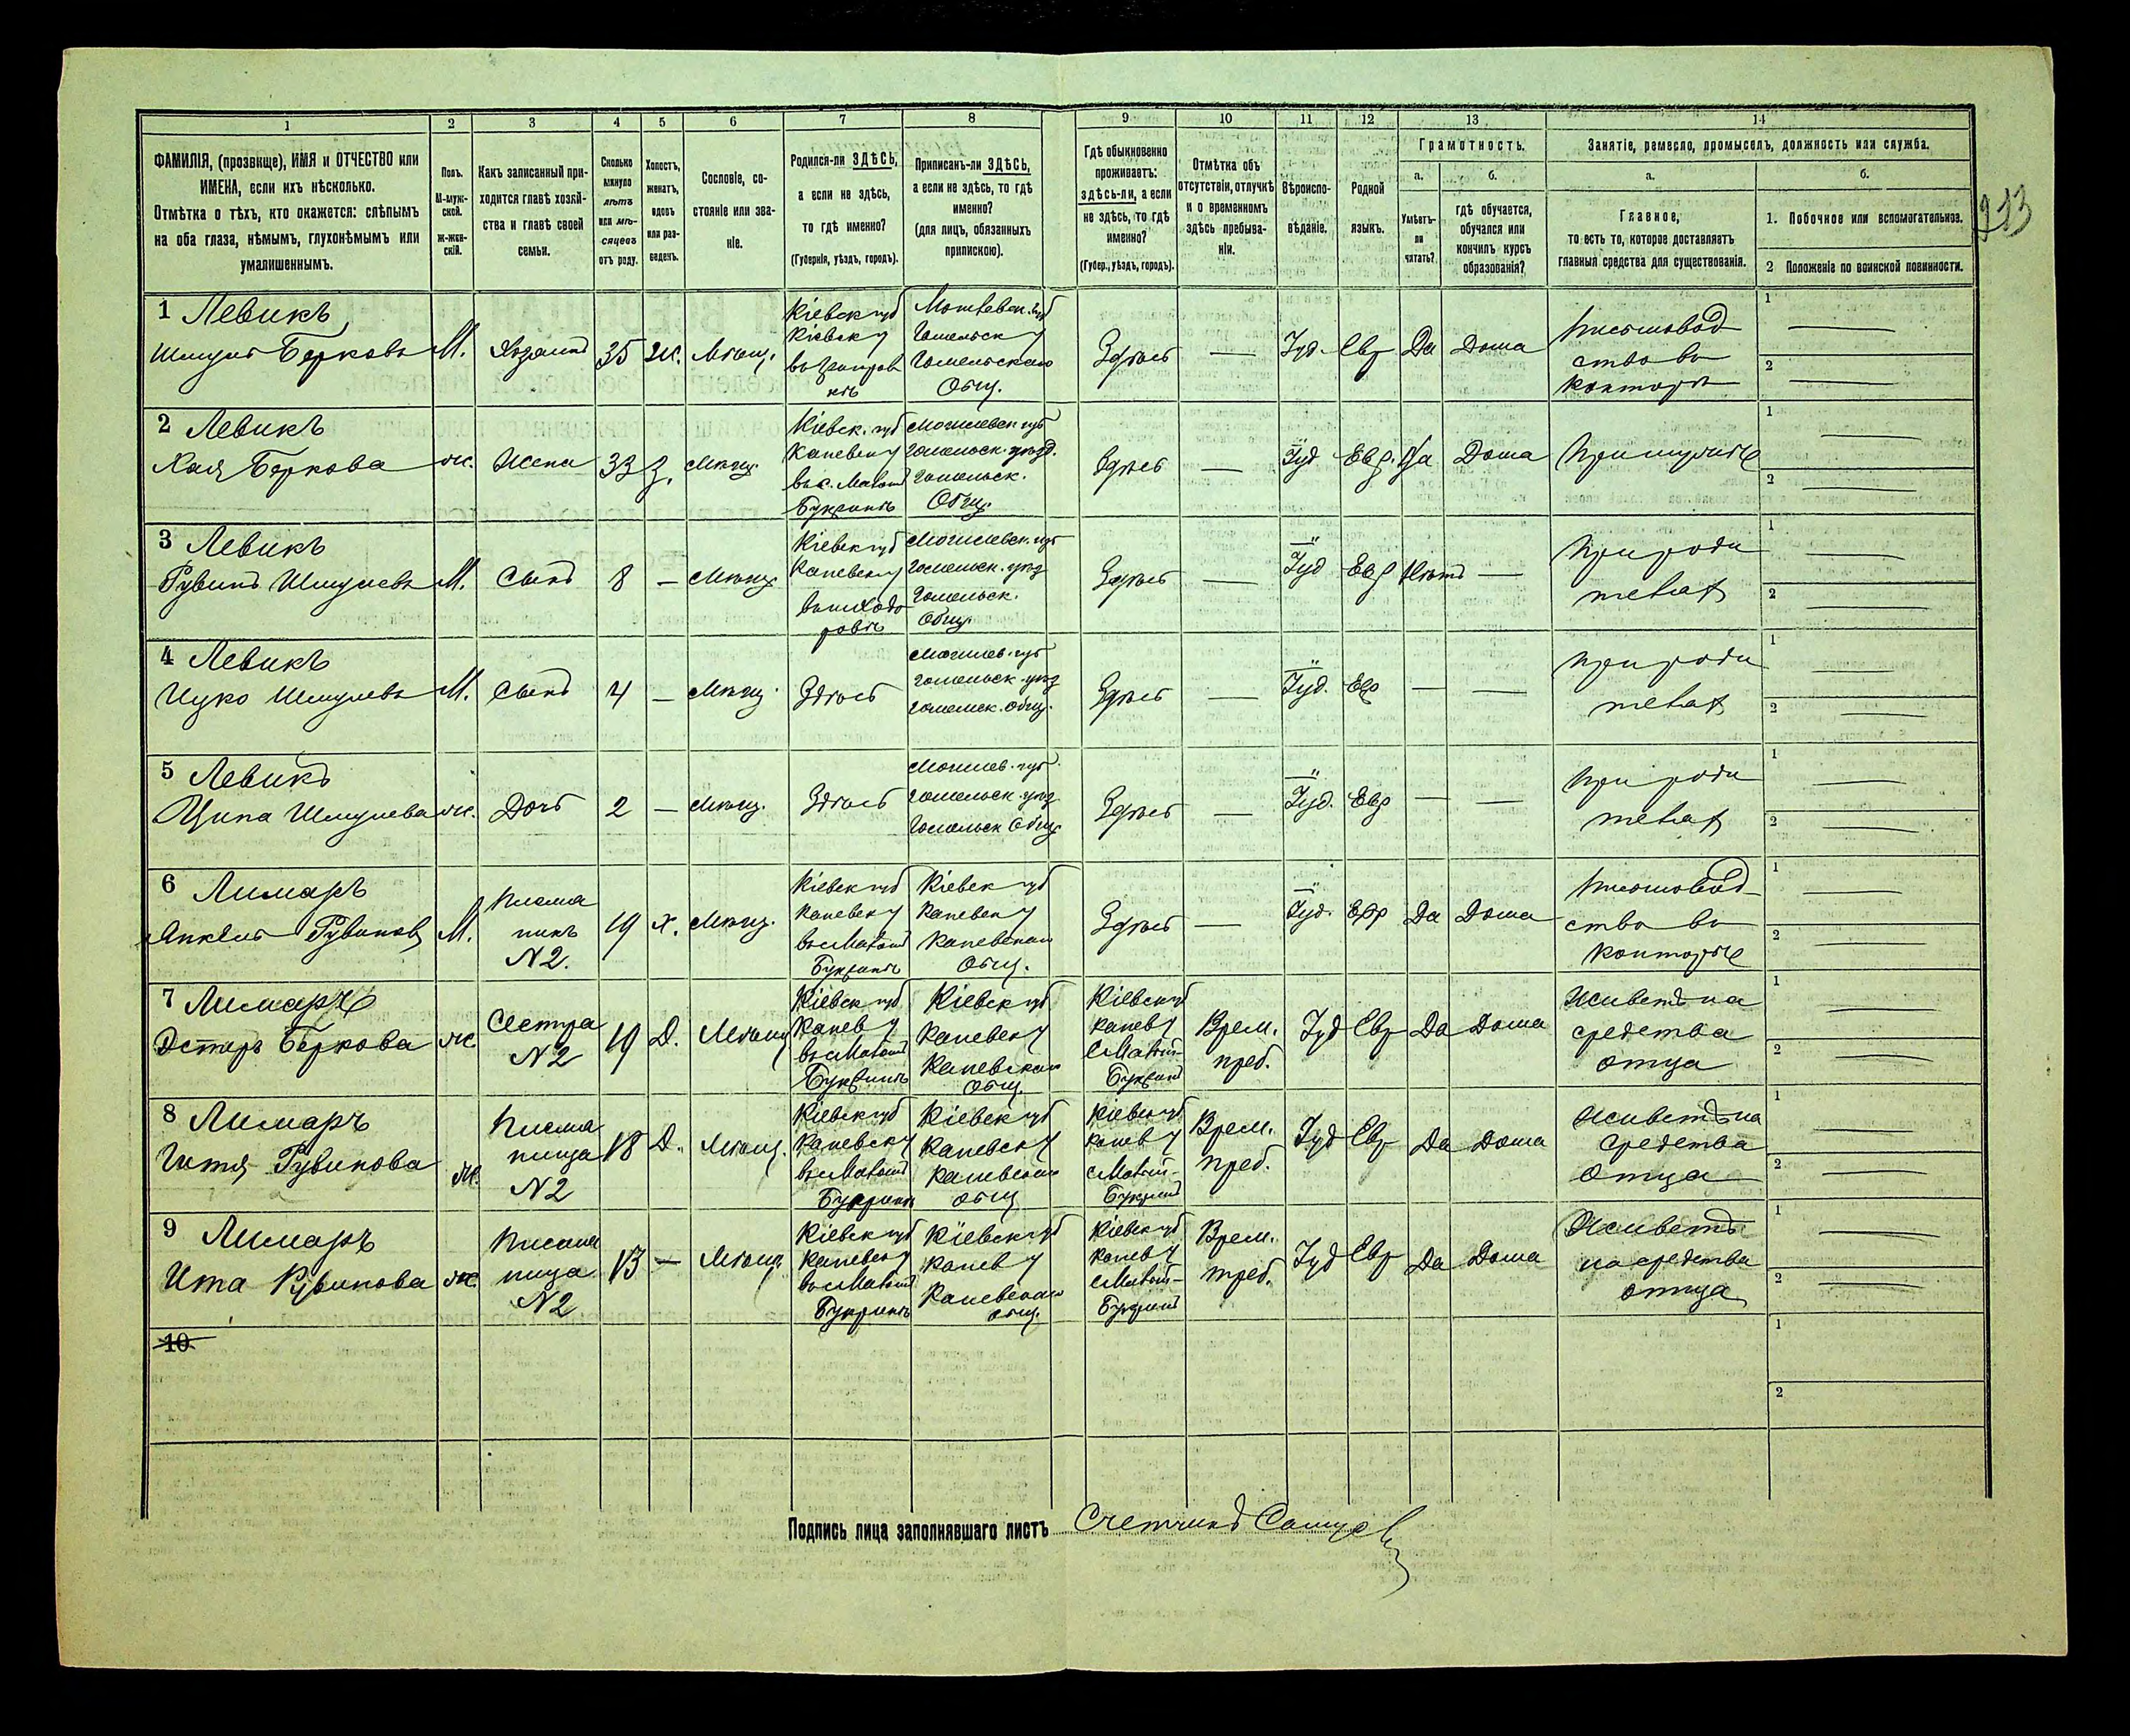 1 2 3 4 5 6 7 8 9 10 11 12 13 14
ФАМИЛІЯ, (прозвище), ИМЯ и ОТЧЕСТВО или
ИМЕНА, если ихъ нѣсколько.
Отмѣтка о тѣхъ, кто окажется: слѣпымъ
на оба глаза, нѣмымъ, глухонѣмымъ или
умалишеннымъ.
Полъ.
М-муж-
ской.
ж-жен-
скій.
Какъ записанный при-
ходится главѣ хозяй-
ства и главѣ своей
семьи.
Сколько
минуло
лѣтъ
или мѣ-
сяцевъ
отъ роду.
Холостъ,
женатъ,
вдовъ
или раз-
веденъ.
Сословіе, со-
стояніе или зва-
ніе.
Родился-ли ЗДѢСЬ,
а если не здѣсь,
то гдѣ именно?
(Губернія, уѣздъ, городъ).
Приписанъ-ли ЗДѢСЬ,
а если не здѣсь, то гдѣ
именно?
(для лицъ, обязанныхъ
припискою).
Гдѣ обыкновенно
проживаетъ:
здѣсь-ли, а если
не здѣсь, то гдѣ
именно?
(Губер., уѣздъ, городъ).
Отмѣтка объ
отсутствіи, отлучкѣ
и о временномъ
здѣсь пребыва-
ніи.
Вѣроиспо-
вѣданіе.
Родной
языкъ.
Грамотность.
а.
Умѣетъ-
ли
читать?
б.
гдѣ обучается,
обучался или
кончилъ курсъ
образованія?
Занятіе, ремесло, промыселъ, должность или служба.
а.
Главное,
то есть то, которое доставляетъ
главныя средства для существованія.
б.
1. Побочное или вспомогательное.
2 Положеніе по воинской повинности.
213
1 Левикъ
Шмуль Берковъ М. Хозяинъ 35 Ж. Мѣщ.
Кіевск губ
Кіевск у
Гомельск у
Гомельскаго
Общ.
Здѣсь — Іуд. Евр Да Дома
Письмовод
ство въ
конторѣ
1
2
2 Левикъ
Хая Беркова ж. Жена 33 З. Мѣщ.
Кіевск. губ
Каневск у
въ с. Малом
Букринѣ
Могилевск губ
Гомельск. уѣзд.
Гомельск.
Общ.
Здѣсь — Іуд Евр. Да Дома При мужѣ
1
2
3 Левикъ
Рувинъ Шмулевъ М. Сынъ 8 — Мѣщ
Кіевск губ
Каневск у
Могилевск. губ
Гомельск. уѣзд
Гомельск.
Общ.
Здѣсь — Іуд Евр Нѣтъ —
При роди
телях
1
2
4 Левикъ
Ицко Шмулевъ М. Сынъ 4 — Мѣщ. Здѣсь
Могилев. губ
Гомельск уѣзд
Гомельск. общ.
Здѣсь — Іуд. Евр — —
При роди
телях
1
2
5 Левикъ
Ципа Шмулева ж. Дочь 2 — Мѣщ. Здѣсь
Могилев. губ.
Гомельск уѣзд
Гомельск Общ
Здѣсь — Іуд. Евр — —
При роди
телях
1
2
6 Лимаръ
Янкель Рувинов М.
Племя
никъ
N2.
19 Х. Мѣщ.
Кіевск губ
Каневск у
въ с Малом
Букринѣ
Кіевск губ
Каневск у
Каневскаго
Общ.
Здѣсь — Іуд. Евр Да Дома
Письмовод
ство въ
конторѣ
1
2
7 Лимаръ
Эстеръ Беркова ж
Сестра
N2
19 Д. Мѣщ
Кіевск губ
Канев у
въ с Малом
Букринѣ
Кіевск губ
Каневск у
Каневскаго
общ
Кіевск губ
Канев у
с Малый-
Букрин
Врем.
преб.
Іуд Евр Да Дома
Живетъ на
средства
отца
1
2
8 Лимаръ
Гитя Рувинова ж.
Племя
ница
N2
18 Д. Мѣщ.
Кіевск губ
Каневск у
въ с Малом
Букринѣ
Кіевск губ
Каневск у
Каневскаго
общ
Кіевск губ
Канев у
с Малый-
Букрин
Врем.
преб.
Іуд Евр Да Дома
Живетъ на
средства
Отца
1
2
9 Лимаръ
Ита Рувинова ж
Племя
ница
N2
13 — Мѣщ
Кіевск губ
Каневск у
въ с Малом
Букринѣ
Кіевск губ
Канев у
Каневскаго
общ.
Кіевск губ
Канев у
с Малый-
Букрин
Врем.
преб.
Іуд Евр Да Дома
Живетъ
на средства
отца
1
2
10
1
2
Подпись лица заполнявшаго листъ Счетчикъ